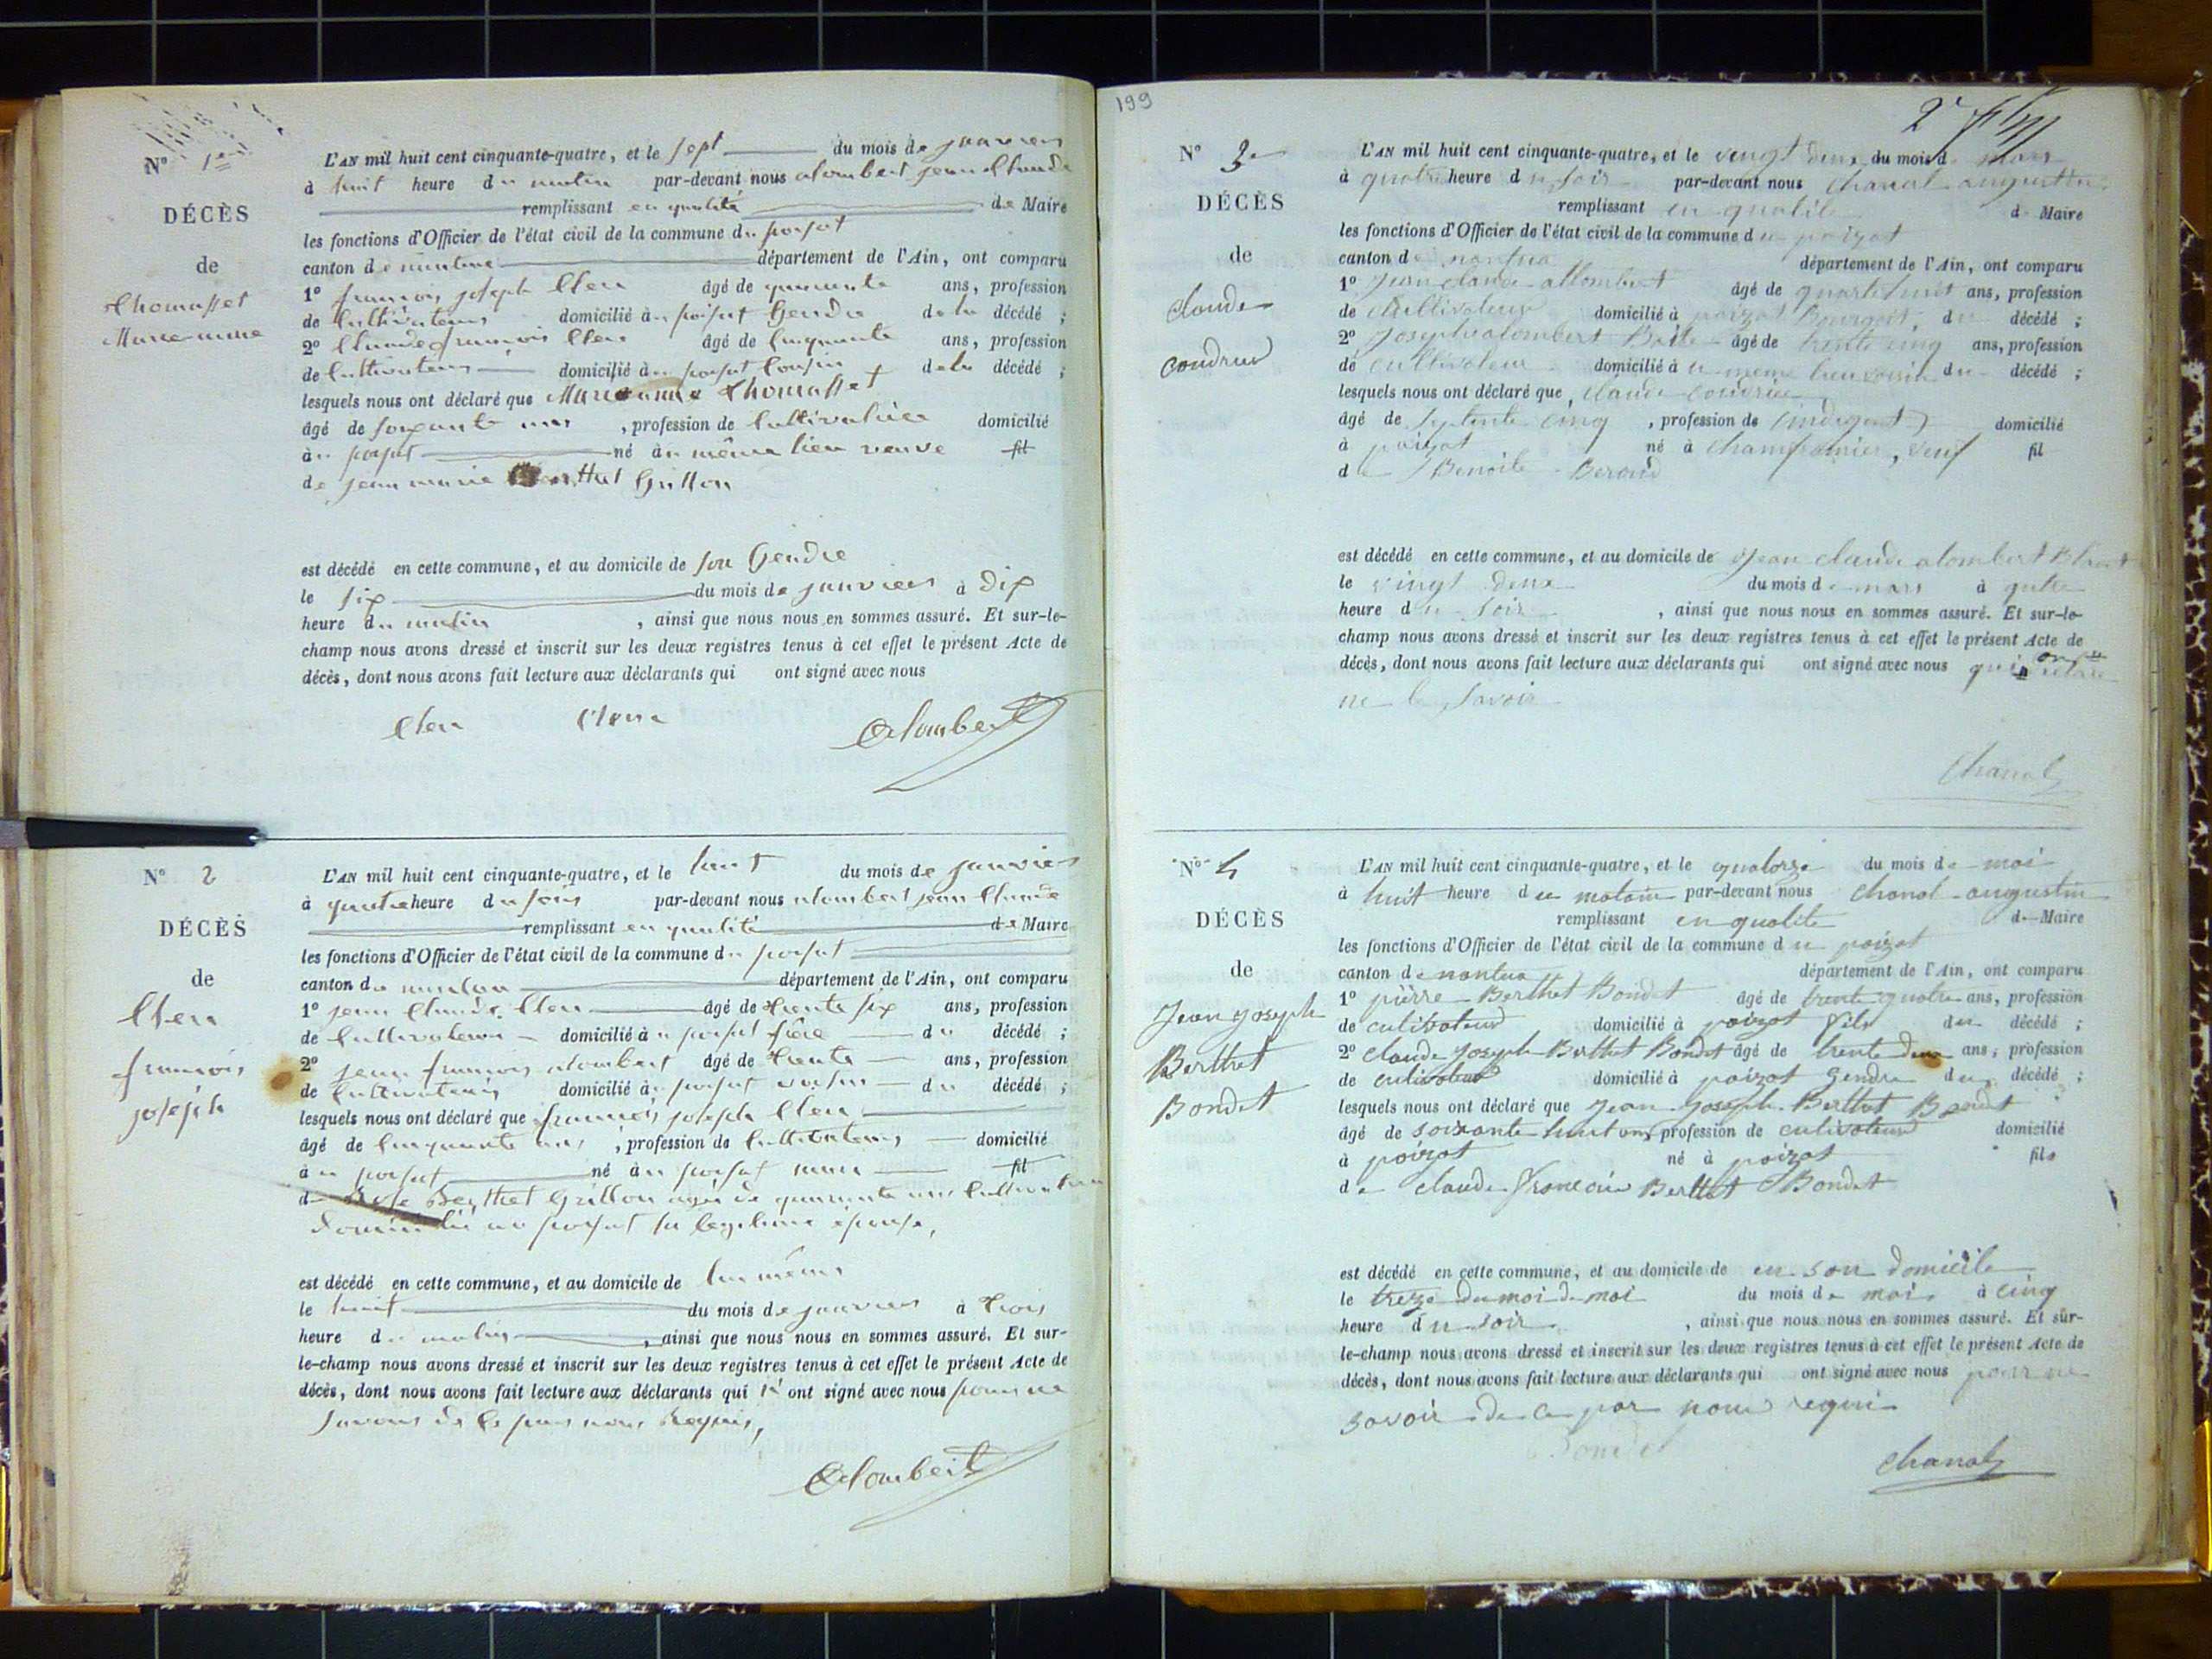 N° 1er
DÉCÈS
de
Thomasset
Marie-anne
L'AN mil huit cent cinquante-quatre, et le sept du mois de janvier
à huit heure du matin par-devant nous alombert jean Claude
remplissant en qualité de Maire
les fonctions d'Officier de l'état civil de la commune du poisat
canton de nantua département de l'Ain, ont comparu
1° françois joseph Clen âgé de quarante ans, profession
de Cultivateur domicilié au poisat Gendre de la décédé ;
2° Claude françois Clen âgé de Cinquante ans, profession
de Cultivateur domicilié au poisat Cousin de la décédé ;
lesquels nous ont déclaré que Marie anne Thomasset
âgé de soixante ans , profession de Cultivatrice domicilié
au poisat né au même lieu veuve fil
de jean marie Berthet Grillon
est décédé en cette commune, et au domicile de son Gendre
le six du mois de janvier à Dix
heure du matin , ainsi que nous nous en sommes assuré. Et sur-le-
champ nous avons dressé et inscrit sur les deux registres tenus à cet effet le présent Acte de
décès, dont nous avons fait lecture aux déclarants qui ont signé avec nous
Clen Clen Alombert
N° 2
DÉCÈS
de
Clen
francois
joseph
L'AN mil huit cent cinquante-quatre, et le huit du mois de janvier
à quatre heure du soir par-devant nous alombert jean Claude
remplissant en qualité de Maire
les fonctions d'Officier de l'état civil de la commune du poisat
canton de nantua département de l'Ain, ont comparu
1° jean Claude Clen âgé de trente six ans, profession
de Cultivateur domicilié au poisat frère du décédé ;
2° jean françois alombert âgé de trente ans, profession
de Cultivateur domicilié au poisat voisin du décédé ;
lesquels nous ont déclaré que francois joseph Clen
âgé de Cinquante ans , profession de Cultivateur domicilié
au poisat né au poisat mari fil
de Rose Berthet Grillon agée de quarante ans Cultivatrice
Domiciliée au poisat sa legitime épouse,
est décédé en cette commune, et au domicile de lui même
le huit du mois de janvier à trois
heure du matin , ainsi que nous nous en sommes assuré. Et sur-
le-champ nous avons dressé et inscrit sur les deux registres tenus à cet effet le présent Acte de
décès, dont nous avons fait lecture aux déclarants qui n' ont signé avec nous pour ne
savoir de Ce par nous Requis,
Alombert
199
N° 3e
DÉCÈS
de
claude
coudrier
L'AN mil huit cent cinquante-quatre, et le vingt deux du mois de mars
à quatre heure du soir par-devant nous chanal augustin
remplissant en qualité de Maire
les fonctions d'Officier de l'état civil de la commune du poizat
canton de nantua département de l'Ain, ont comparu
1° Jean claude allombert âgé de ans, profession
de Cultivateur domicilié à poizat du décédé ;
2° Joseph alombert âgé de trente cinq ans, profession
de cultivateur domicilié à u même lieu voisin du décédé ;
lesquels nous ont déclaré que claude coudrier
âgé de septente cinq , profession de (indigent) domicilié
à poizat né à Champfromier, veuf fil
de Benoite Beroud
est décédé en cette commune, et au domicile de Jean claude alombert
le vingt deux du mois de mars à
heure du soir , ainsi que nous nous en sommes assuré. Et sur-le-
champ nous avons dressé et inscrit sur les deux registres tenus à cet effet le présent Acte de
décès, dont nous avons fait lecture aux déclarants qui ont signé avec nous qui on
ne le savoir
Chanal
N° 4
DÉCÈS
de
Jean Joseph
Berthet
Bondet
L'AN mil huit cent cinquante-quatre, et le quatorze du mois de mai
à huit heure du matin par-devant nous chanal augustin
remplissant en qualité de Maire
les fonctions d'Officier de l'état civil de la commune du poizat
canton de nantua département de l'Ain, ont comparu
1° pierre Berthet Bondet âgé de trente quatre ans, profession
de cultivateur domicilié à poizat fils du décédé ;
2° claude Joseph Berthet Bondet âgé de trente deux ans, profession
de cultivateur domicilié à poizat Gendre du décédé ;
lesquels nous ont déclaré que Jean Joseph Berthet Bondet
âgé de soixante huit ans profession de cultivateur domicilié
à poizat né à poizat fils
de claude francois Berthet Bondet
est décédé en cette commune, et au domicile de en son domicile
le treze du moi de mai du mois de mai à cinq
heure du soir , ainsi que nous nous en sommes assuré. Et sur-
le-champ nous avons dressé et inscrit sur les deux registres tenus à cet effet le présent Acte de
décès, dont nous avons fait lecture aux déclarants qui ont signé avec nous pour ne
savoir de ce par nous requi
Bondet
Chanal